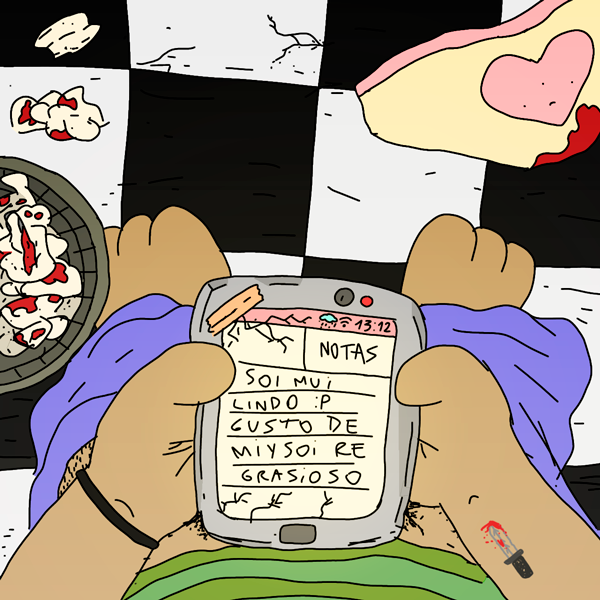 13:12
NOTAS
SOI MUi
LINDO :P
GUSTO DE
MiYSOi RE
GRASiOSO